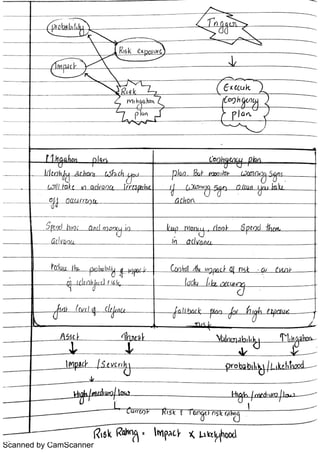 probability
Trigger
Risk exposure
Impact
Risk
mitigation
plan
Execute
Contingency
plan
Mitigation plan
Contingency plan
Identify actions which you
will take in advance irrespective
of occurrence
plan. But monitor warning signs
if warning sign occur you take
action.
Spend time and money in
advance
keep money, dont spend them
in advance
Reduce the probability of impact
of identified risk
Control the impact of risk or event
looks like occuring
first level of defence
fallback plan for high exposure
risk
Asset Threat Vulnerability Mitigation
Impact / Severity probability/Likelihood
High/medium/low High/medium/low
Current Risk & Target risk rating
Risk Rating = Impact x Likelyhood
Scanned by CamScanner